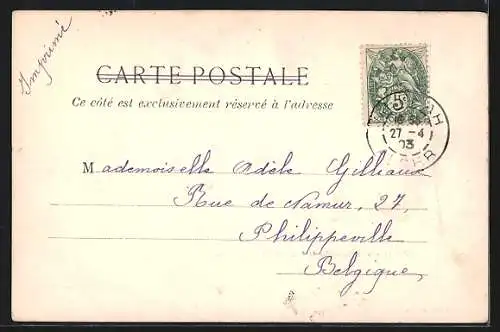 Imprimé
CARTE POSTALE
Ce côté est exclusivement réservé à l'adresse
5c
27 -4
03
Mademoiselle Adèle Gilliaux
Rue de Namur, 27,
Philippeville
Belgique